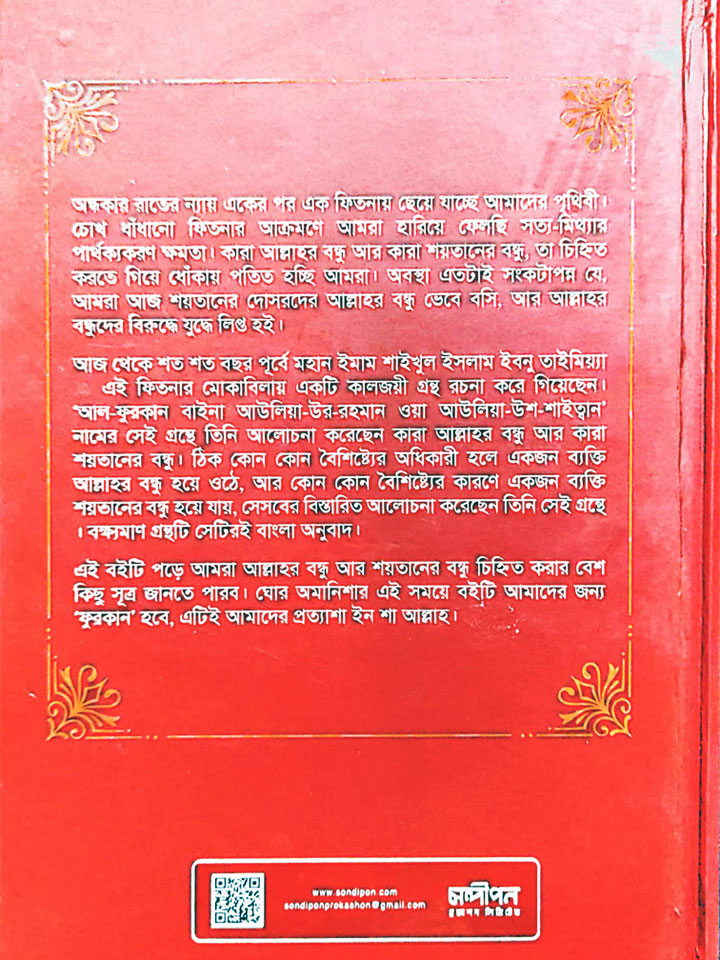 অন্ধকার রাতের ন্যায় একের পর এক ফিতনায় ছেয়ে যাচ্ছে আমাদের পৃথিবী।
চোখ ধাঁধানো ফিতনার আক্রমণে আমরা হারিয়ে ফেলছি সত্য-মিথ্যার
পার্থক্যকরণ ক্ষমতা। কারা আল্লাহর বন্ধু আর কারা শয়তানের বন্ধু, তা চিহ্নিত
করতে গিয়ে ধোঁকায় পতিত হচ্ছি আমরা। অবস্থা এতটাই সংকটাপন্ন যে,
আমরা আজ শয়তানের দোসরদের আল্লাহর বন্ধু ভেবে বসি, আর আল্লাহর
বন্ধুদের বিরুদ্ধে যুদ্ধে লিপ্ত হই।
আজ থেকে শত শত বছর পূর্বে মহান ইমাম শাইখুল ইসলাম ইবনু তাইমিয়্যা
এই ফিতনার মোকাবিলায় একটি কালজয়ী গ্রন্থ রচনা করে গিয়েছেন।
‘আল-ফুরকান বাইনা আউলিয়া-উর-রহমান ওয়া আউলিয়া-উশ-শাইত্বান’
নামের সেই গ্রন্থে তিনি আলোচনা করেছেন কারা আল্লাহর বন্ধু আর কারা
শয়তানের বন্ধু। ঠিক কোন কোন বৈশিষ্ট্যের অধিকারী হলে একজন ব্যক্তি
আল্লাহর বন্ধু হয়ে ওঠে, আর কোন কোন বৈশিষ্ট্যের কারণে একজন ব্যক্তি
শয়তানের বন্ধু হয়ে যায়, সেসবের বিস্তারিত আলোচনা করেছেন তিনি সেই গ্রন্থে
। বক্ষ্যমাণ গ্রন্থটি সেটিরই বাংলা অনুবাদ।
এই বইটি পড়ে আমরা আল্লাহর বন্ধু আর শয়তানের বন্ধু চিহ্নিত করার বেশ
কিছু সূত্র জানতে পারব। ঘোর অমানিশার এই সময়ে বইটি আমাদের জন্য
‘ফুরকান’ হবে, এটিই আমাদের প্রত্যাশা ইন শা আল্লাহ।
www.sondipon.com
sondiponprokashon@gmail.com
সন্দীপন
প্রকাশন লিমিটেড